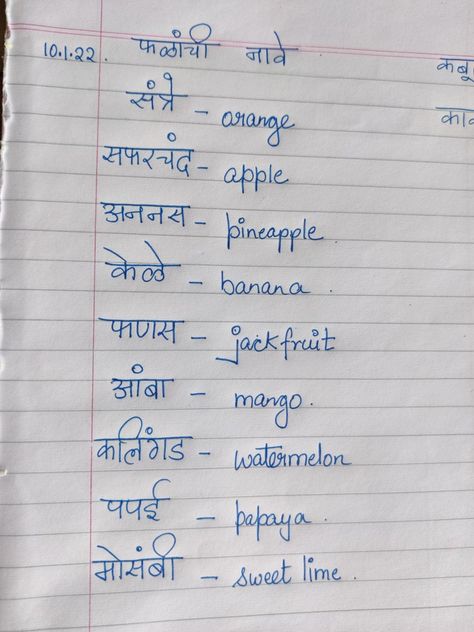 10.1.22. फळांची नावे
संत्रे - orange
सफरचंद - apple
अननस - pineapple.
केळे - banana.
फणस - jackfruit
आंबा - mango.
कलिंगड - watermelon
पपई - papaya.
मोसंबी - sweet lime.